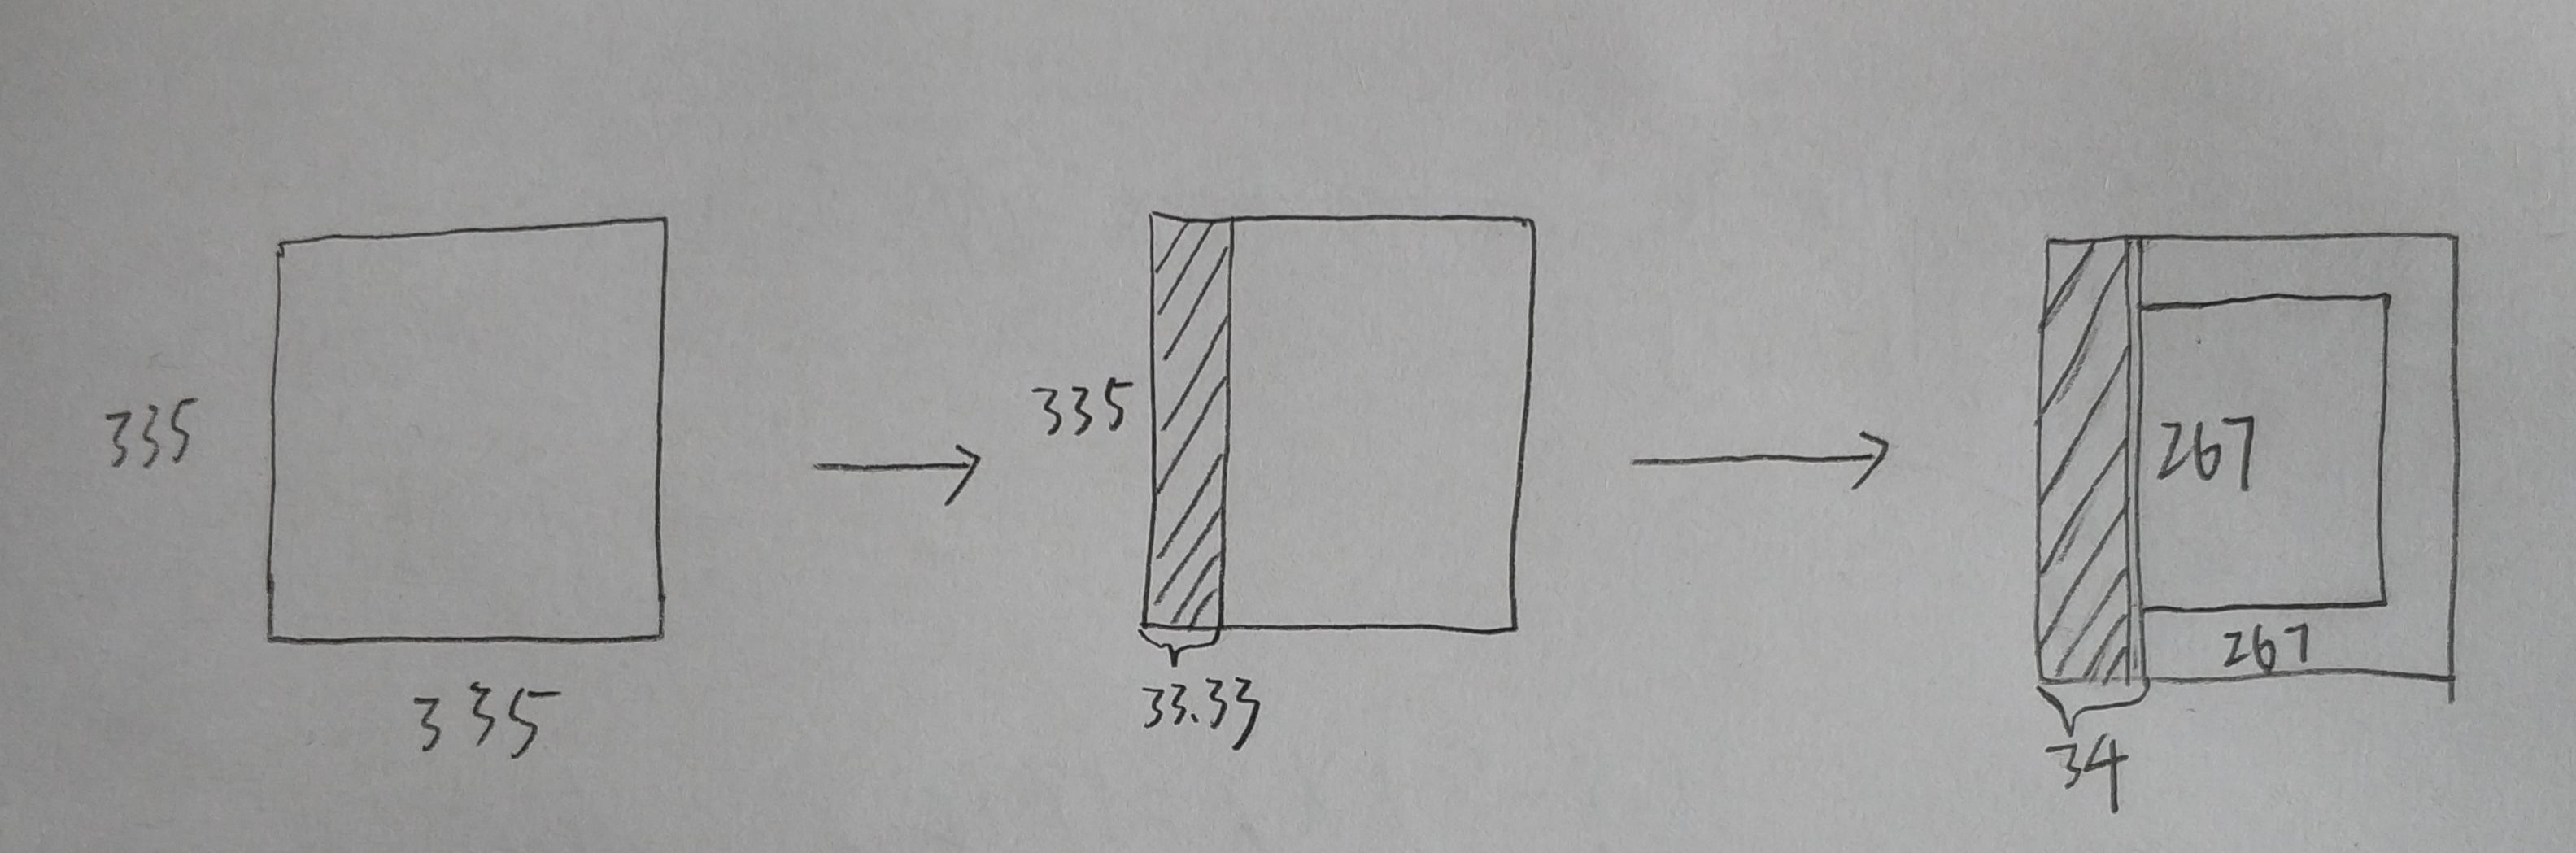 335
335
335
33.33
267
267
34